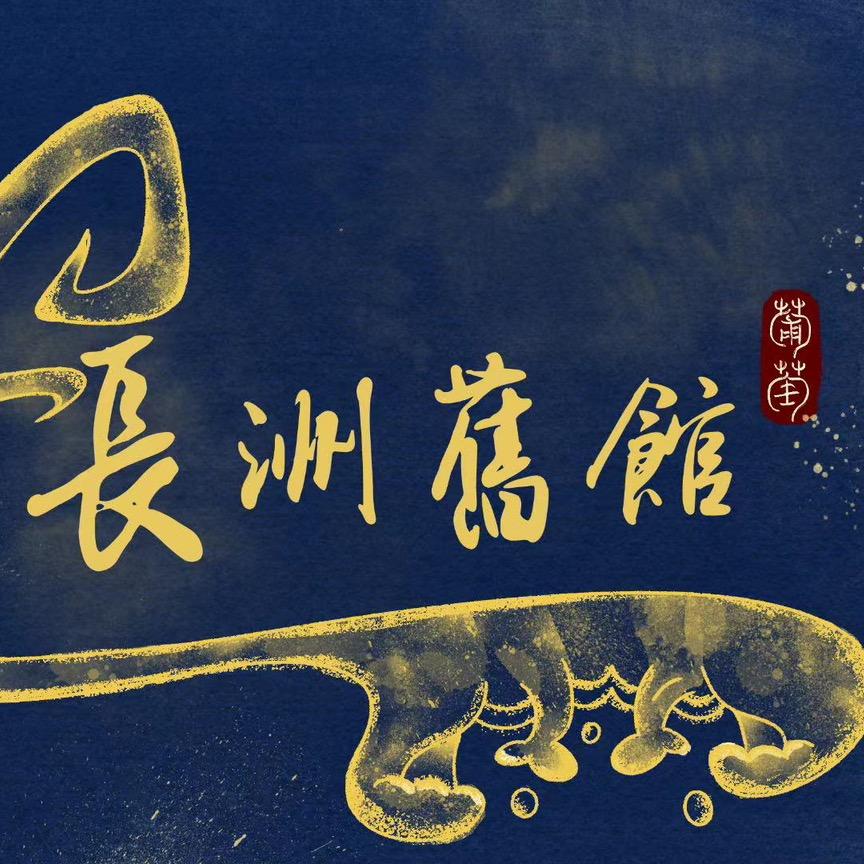 長洲舊館
葡萄